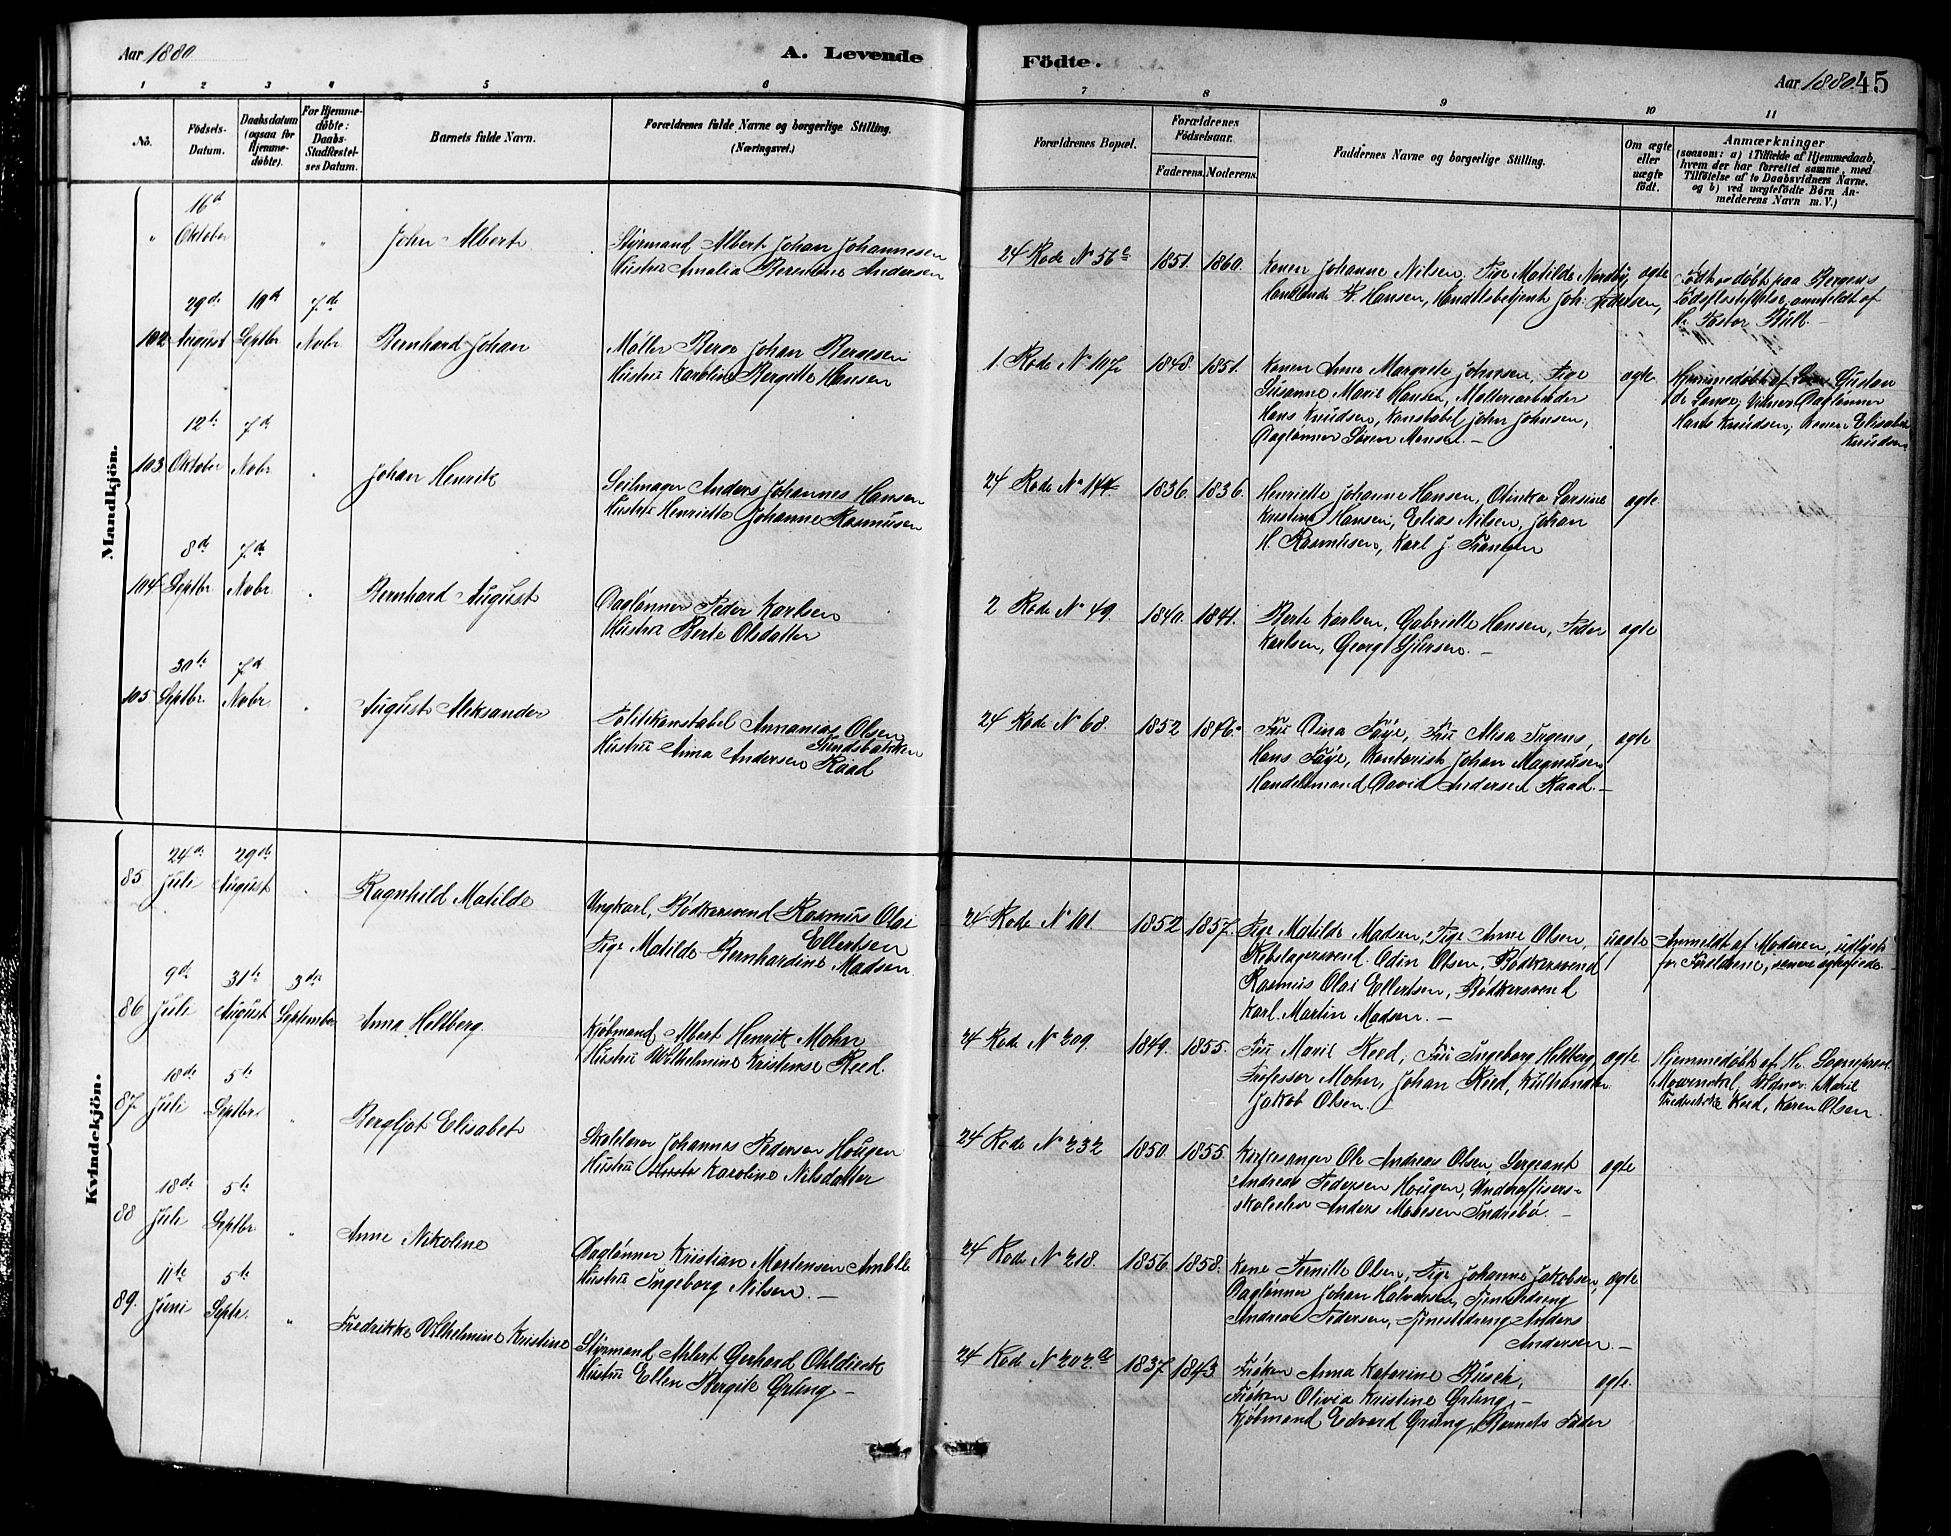 Aar 1880
A. Levende
Födte.
Aar 1880. 45
1 2 3 4 5 6 7 8 9 10 11
No.
Födsels-
Datum.
Daabsdatum
(ogsaa for
Hjemme-
döbte).
For Hjemme-
döbte:
Daabs-
Stadfæstel-
ses Datum.
Barnets fulde Navn.
Forældrenes fulde Navne og borgerlige Stilling.
(Næringsvei.)
Forældrenes Bopæl.
Forældrenes
Födselsaar.
Faderens. Moderens.
Faddernes Navne og borgerlige Stilling.
Om ægte
eller
uægte
födt.
Anmærkninger
(saasom: a) i Tilfælde af Hjemmedaab,
hvem der har forrettet samme, med
Tilföielse af to Daabsvidners Navne,
og b) ved uægtefödte Börn An-
melderens Navn m. V.)
Mandkjön.
" 16d Oktober "
John Albert
Styrmand Albert Johan Johannesen
Hustru Amalia Beremine Andersen
24 Rode No 56c 1851. 1860.
Konen Johanne Nilsen, Pige Matilde Nordbö,
Handlende H. Hansen, Handelsbetjent Joh. Pedersen,
ægte
Födt og döbt paa Bergens
Födselsstiftelse, anmeldt af
Hr. Pastor Bull. –
102 29de August 19d Septbr 7de Nobr
Bernhard Johan
Møller Berge Johan Bergesen
Hustru Karoline Bergitte Hansen
1. Rode No 107 1848. 1851.
Konen Anne Margrete Johnsen, Pige
Susanne Marie Hansen, Møllerarbeider
Hans Knudsen, Konstabel John Johnsen,
Daglønner Søren Monsen. –
ægte
Hjemmedöbt af Gustav
de Lange; Vidner Daglønner
Hans Knudsen, Konen Elisabet
Knudsen
103 12te Oktober 7d Nobr "
Johan Henrik
Seilmager Anders Johannes Hansen
Hustru Henriette Johanne Rasmusen
24 Rode No 144 1836. 1836.
Henriette Johanne Hansen, Otinka Larsine
Kristine Hansen, Elias Nilsen, Johan
H. Rasmusen, Karl J. Frantzen
ægte
104 8d Septbr 7de Nobr "
Bernhard August
Daglønner Peder Karlsen
Hustru Berte Olsdatter
2 Rode No 49. 1840. 1841.
Berte Karlsen, Gabrielle Hansen, Peder
Karlsen, Georg –
ægte
105 30te Septbr. 7d Nobr. "
August Aleksander
Politikonstabel Annanias Olsen
Sundsbakken
Hustru Anna Andersen Raad
24 Rode No 68. 1852 1846.
Fru Dina Føye, Fru Alisa Irgens,
Hans Føye, Kontorist Johan Magnusen,
Handelsmand David Andersen Raad. –
ægte
Kvindekjön.
85 24de Juli 29de August "
Ragnhild Matilde
Ungkarl, Bødkersvend Rasmus Olai
Ellertsen
Pige Matilde Bernhardine Madsen
24 Rode No 101. 1852 1857.
Pige Matilde Madsen, Pige Anne Olsen,
Rebslagersvend Odin Olsen, Bødkersvend
Rasmus Olai Ellertsen, Bødkersvend
Karl Martin Madsen. –
uægte
Anmeldt af Moderen, udlyst
for Forældrene, senere ægteviede.
86 9d Juli 31te August 3die September
Anna Heltberg
Kjøbmand Albert Henrik Mohn
Hustru Wilhelmine Kristense Reed.
24 Rode No 209. 1849. 1855.
Fru Marie Reed, Fru Ingeborg Heltberg,
Professor Mohn, Johan Reed, Kulhandler
Jakob Olsen. –
ægte
Hjemmedöbt af Hr. Sognepræst
Mowenckel, Vidner: Marie
Fredrikke Reed, Karen Olsen.
87. 18de Juli 5te Septbr "
Bergljot Elisabet
Skolelærer Johannes Pedersen Hougen
Hustru Karoline Nilsdatter
24 Rode No 232 1850. 1855.
Kirkesanger Ole Andreas Olsen, Sergeant
Andreas Pedersen Hougen, Underofficers-
skoleelev Anders Monsen Indrebø. –
ægte
88 18de Juli 5te Septbr "
Anne Nikoline
Daglønner Kristian Mortensen Amble
Hustru Ingeborg Nilsen. –
24 Rode No 218. 1856. 1858.
Kone Pernille Olsen, Pige Johanne Jakobsen,
Daglønner Johan Halvorsen, Tjenestedreng
Andreas Pedersen, Tjenestedreng Anders
Andersen. –
ægte
89. 11te Juni 5te Septr. "
Fredrikke Vilhelmine Kristine
Styrmand Ahlert Gerhard Ohldieck
Hustru Ellen Bergite Grung –
24 Rode No 202a 1837. 1843.
Frøken Anna Katarine Busch,
Frøken Olivia Kristine Grung, –
Kjøbmand Edvard Grung, Barnets Fader
ægte.